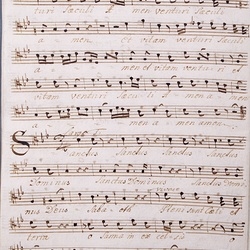 turi Saeculi A men venturi Saeculi
a men et vitam venturi Saeculi
a men et vitam venturi et
vitam venturi Saeculi A men a
men a men amen
Largo
Sanctus Sanctus Sanctus
Dominus Sanctus Dominus Sanctus Domi
nus Deus Saba oth Pleni sunt Caeli et
terra o sanna in ex cel sis